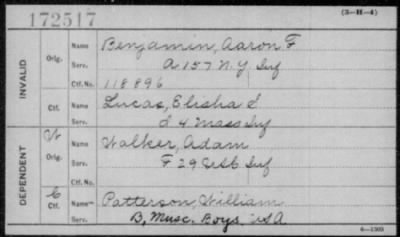 172517 (3-H-4)
INVALID
Orig. Name Benjamin, Aaron F
Serv. A 157 N.Y. Inf
Ctf. No. 118896
Ctf. Name Lucas, Elisha S
Serv. I 4 Mass Inf
DEPENDENT
W Orig. Name Walker, Adam
Serv. F 29 USC Inf
Ctf. No.
C Ctf. Name Patterson, William
Serv. B, Musc. Boys USA
6-1303